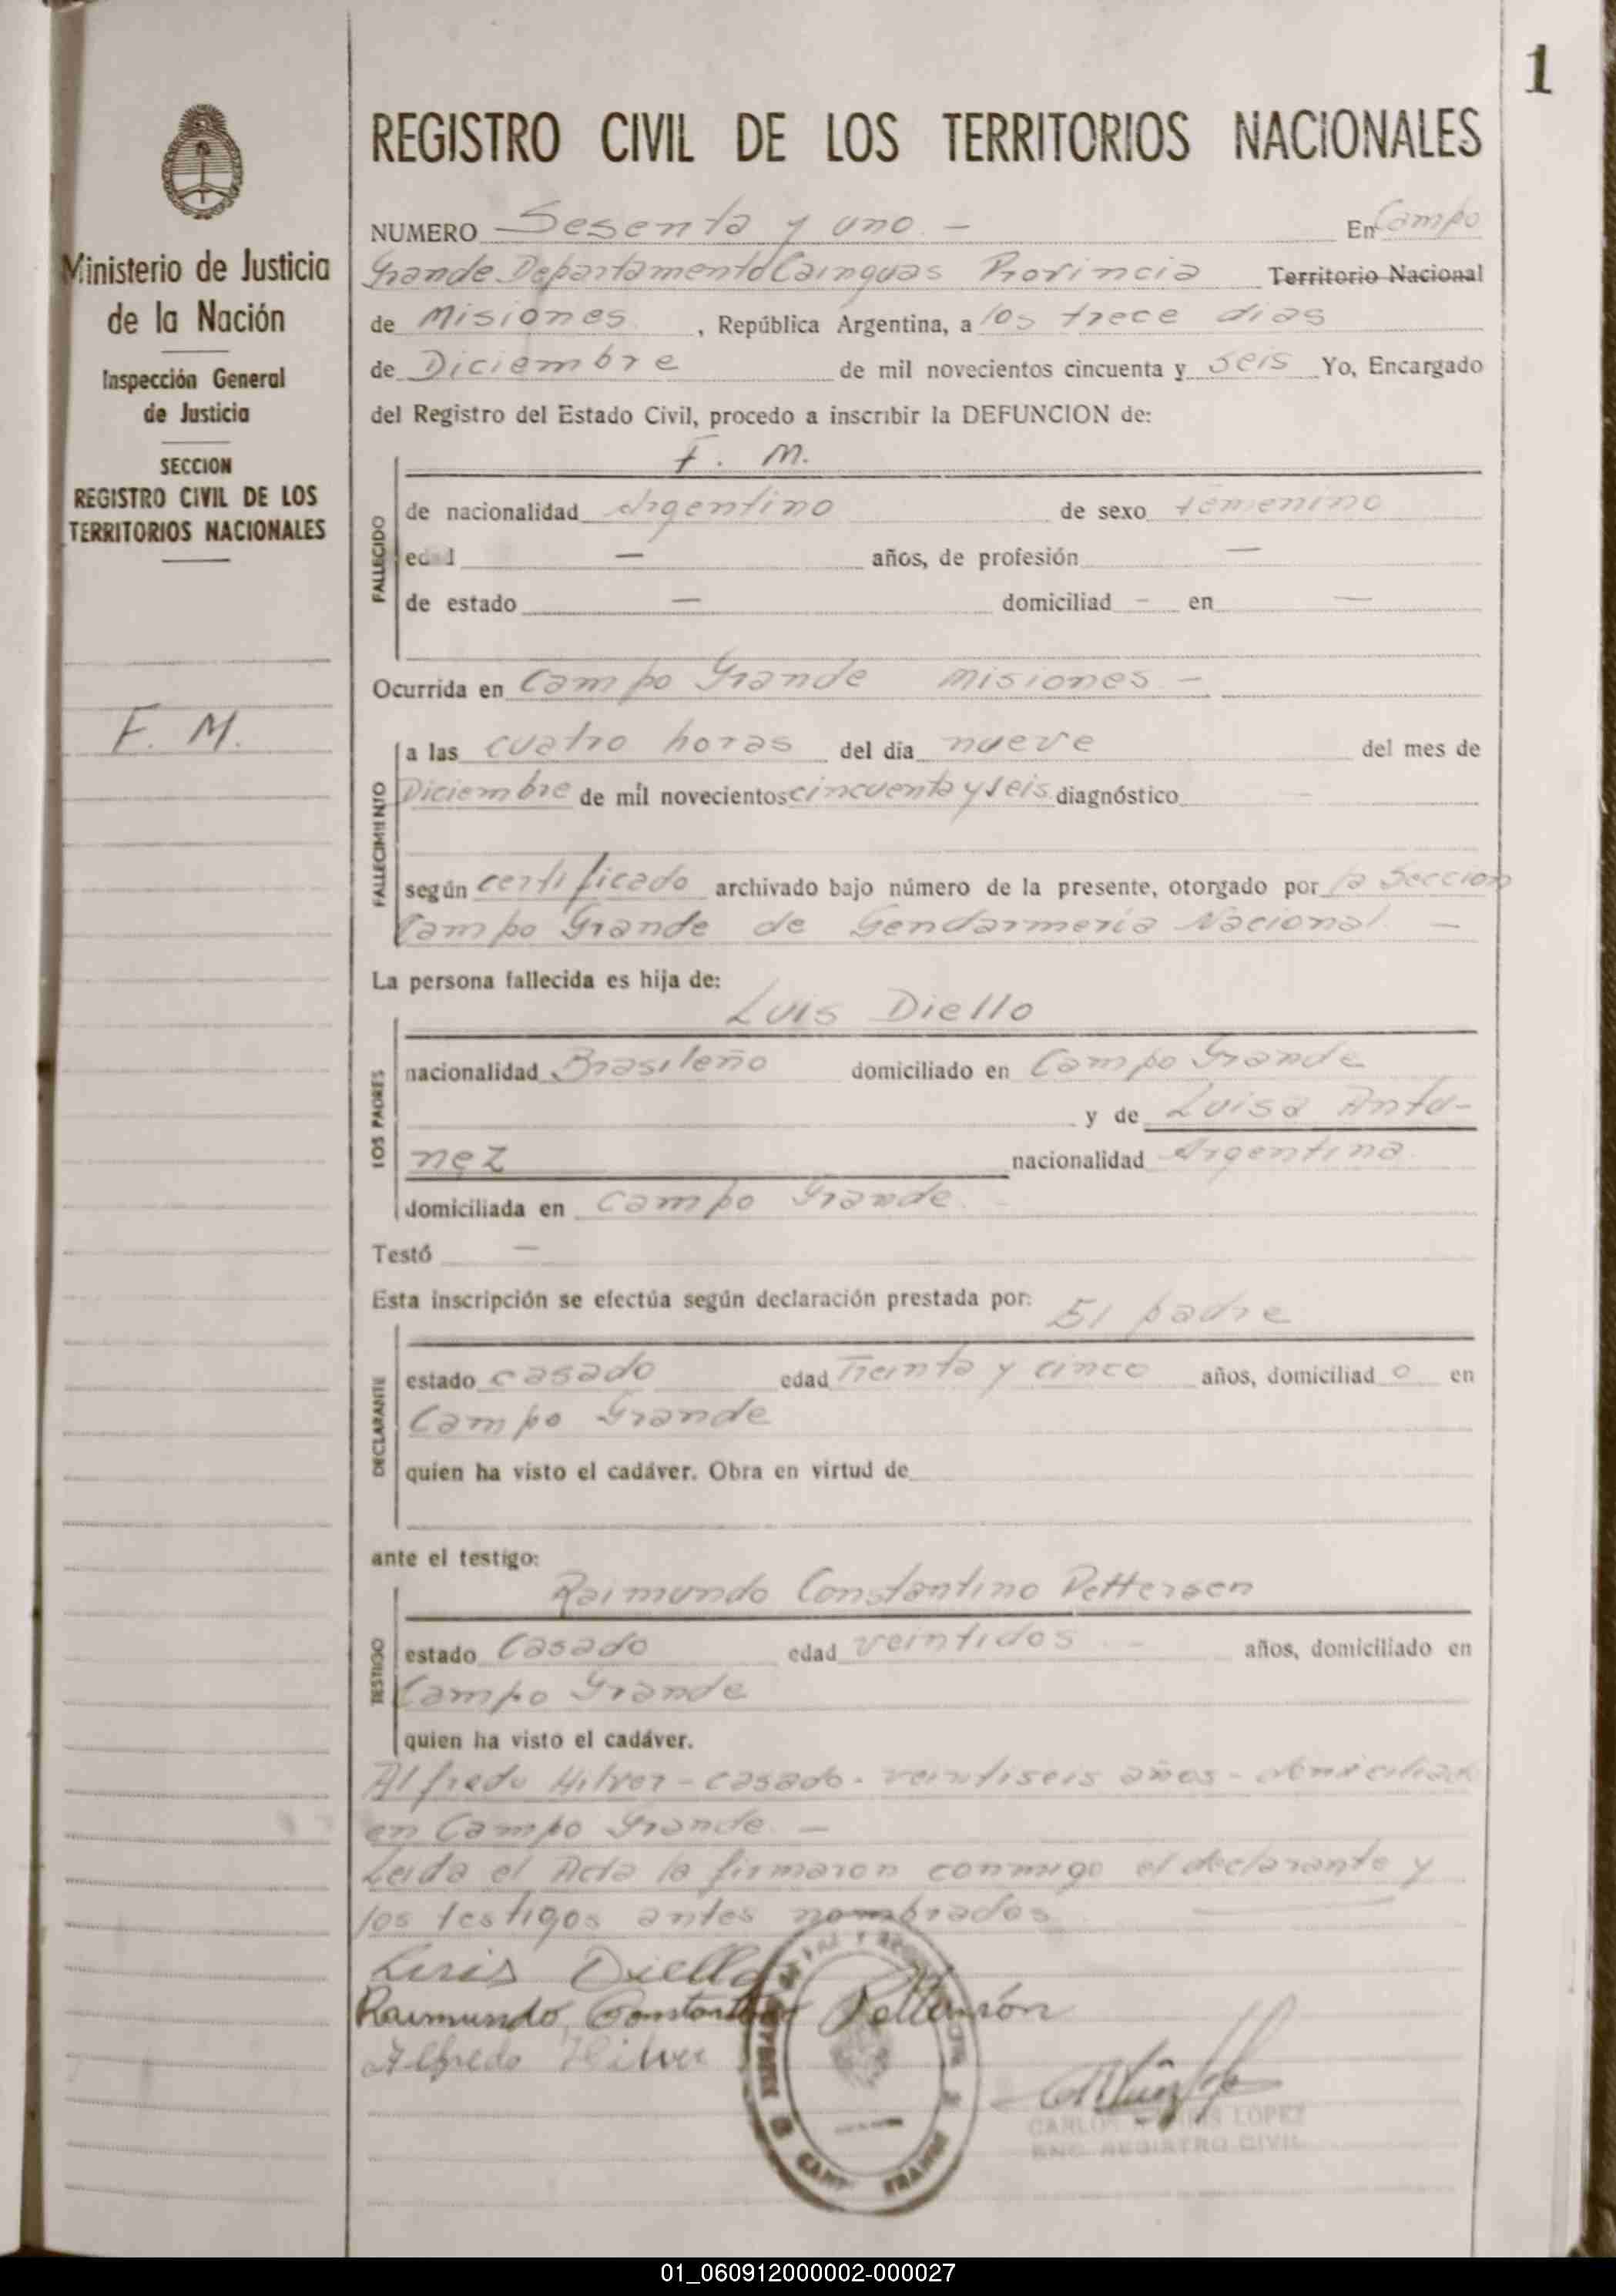 1
REGISTRO CIVIL DE LOS TERRITORIOS NACIONALES
Ministerio de Justicia
de la Nación
Inspección General
de Justicia
SECCION
REGISTRO CIVIL DE LOS
TERRITORIOS NACIONALES
F. M.
NUMERO Sesenta y uno. — En Campo
Grande Departamento Cainguas Provincia Territorio Nacional
de Misiones, República Argentina, a los trece dias
de Diciembre de mil novecientos cincuenta y seis Yo, Encargado
del Registro del Estado Civil, procedo a inscribir la DEFUNCION de:
F. M.
FALLECIDO
de nacionalidad Argentino de sexo femenino
edad — años, de profesión —
de estado — domiciliad - en —
Ocurrida en Campo Grande Misiones. —
FALLECIMIENTO
a las cuatro horas del día nueve del mes de
Diciembre de mil novecientos cincuenta y seis diagnóstico
según certificado archivado bajo número de la presente, otorgado por la Seccion
Campo Grande de Gendarmeria Nacional. —
La persona fallecida es hija de:
LOS PADRES
Luis Diello
nacionalidad Brasileño domiciliado en Campo Grande
y de Luisa Antu-
nez nacionalidad Argentina
domiciliada en Campo Grande.
Testó —
Esta inscripción se efectúa según declaración prestada por: El padre
DECLARANTE
estado casado edad Treinta y cinco años, domiciliad o en
Campo Grande
quien ha visto el cadáver. Obra en virtud de
ante el testigo:
TESTIGO
Raimundo Constantino Pettersen
estado Casado edad veintidos. — años, domiciliado en
Campo Grande
quien ha visto el cadáver.
Alfredo Hilver - casado - veintiseis años - domiciliado
en Campo Grande. —
Leida el Acta la firmaron conmigo el declarante y
los testigos antes nombrados
Luis Diello
Raimundo Constantino
Alfredo Hilver
CARLOS LOPEZ
ENC. REGISTRO CIVIL
01_060912000002-000027